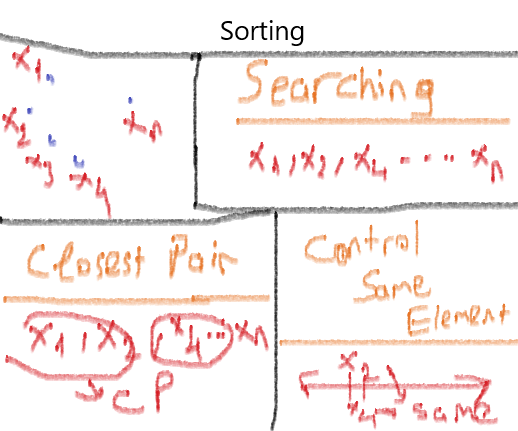 Sorting
x1
x2
x3
x4
xn
Searching
x1, x2, x4 .... xn
Closest Pair
x1, x2, x4... xn
CP
Control
Same
Element
x2
x4...
same